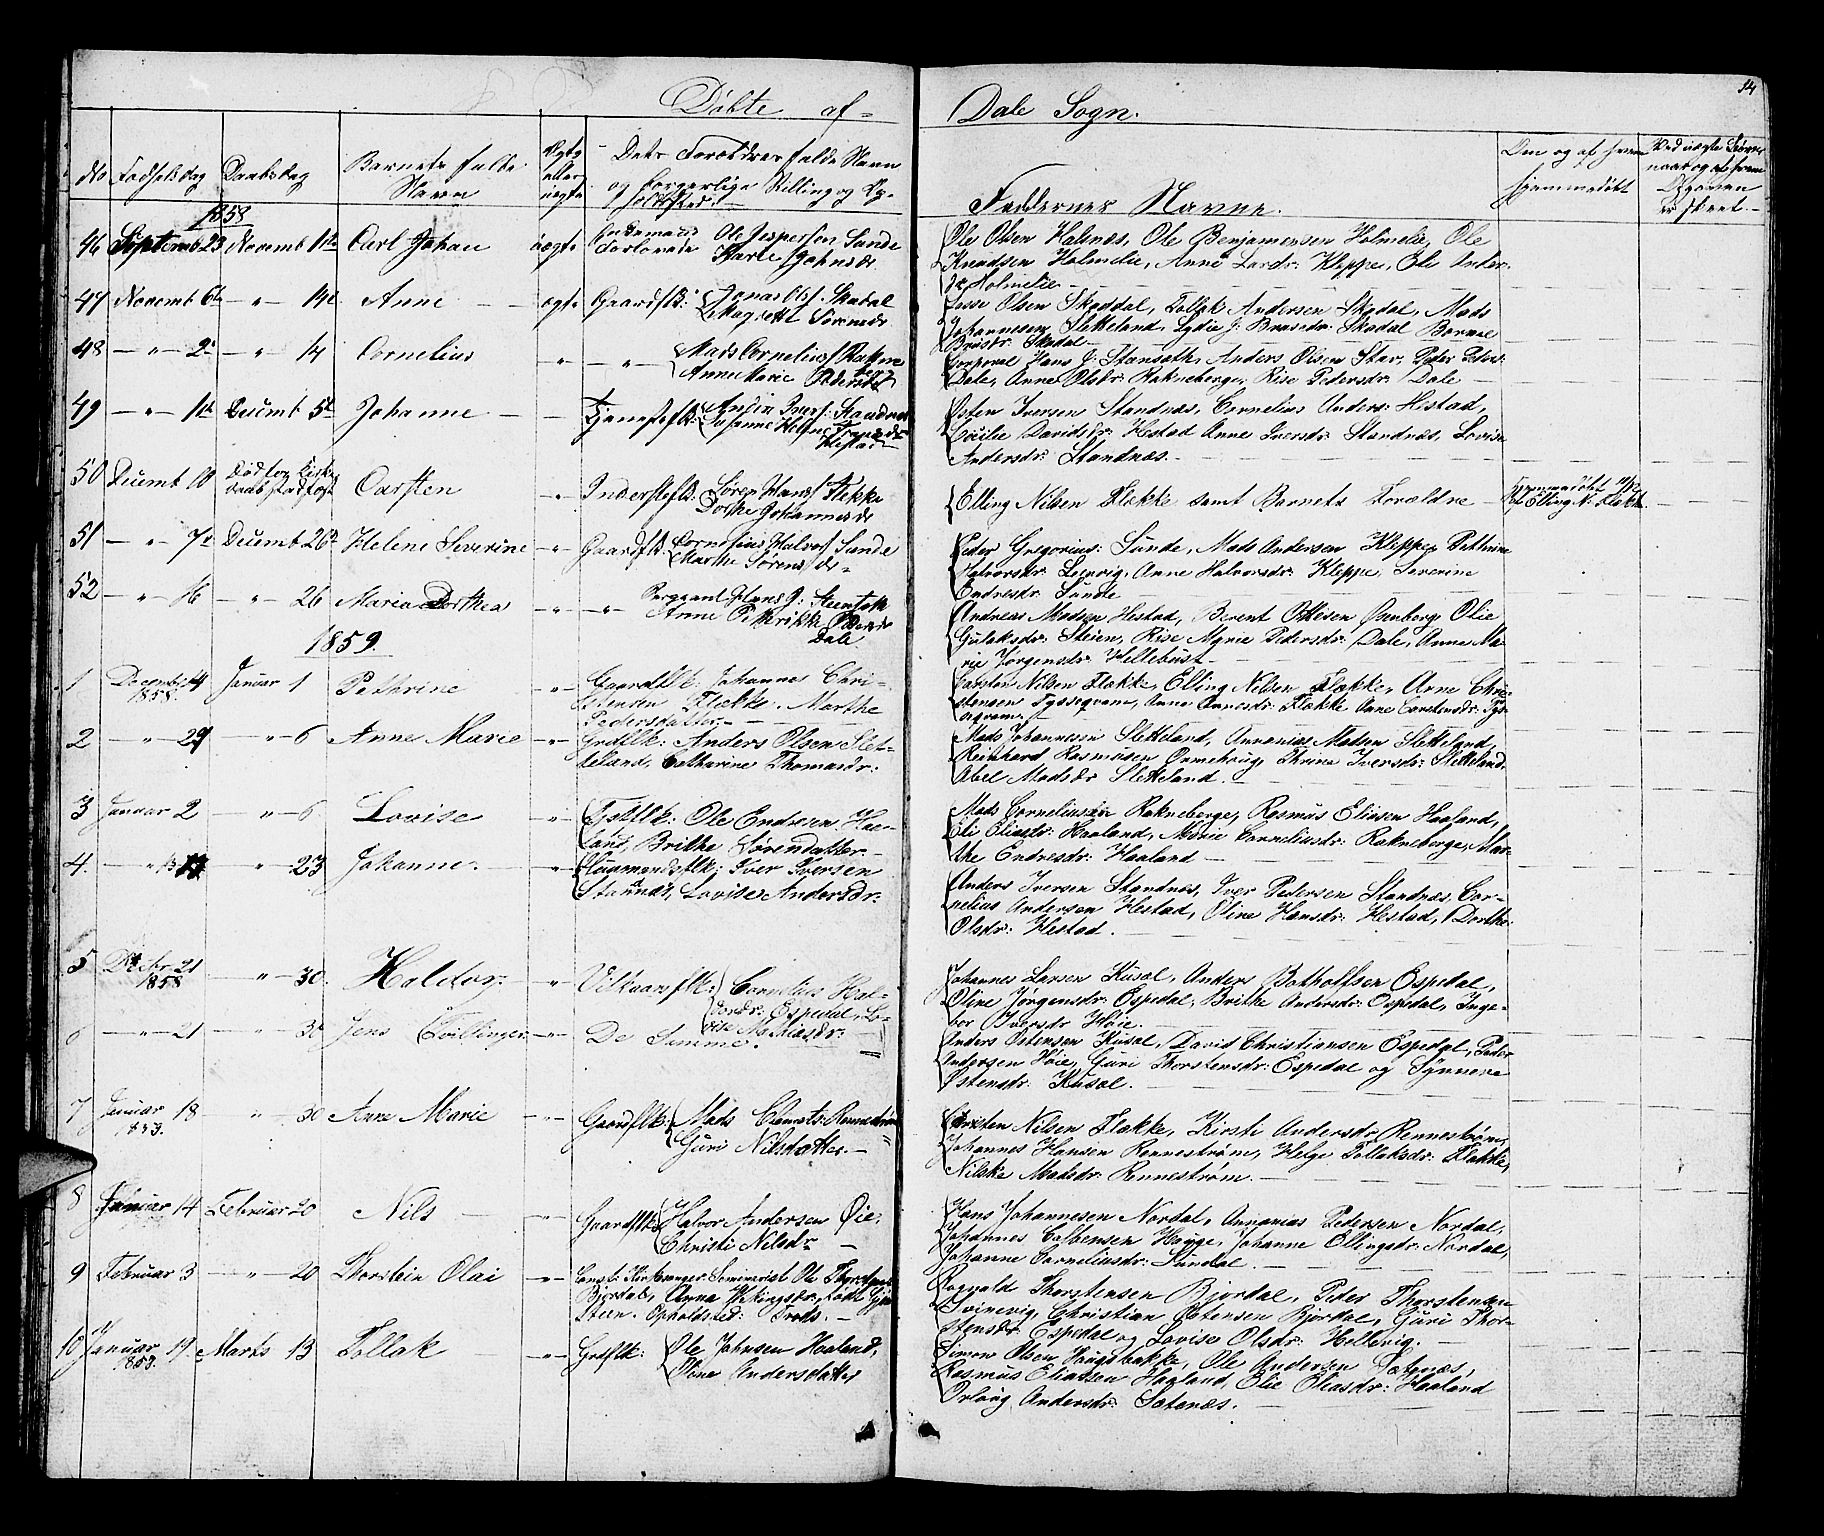 14
Døbte af Dale Sogn.
No Fødselsdag Daabsdag Barnets fulde Navn Ægte eller uægte Dets Forældres fulde Navn og borgerlige Stilling og
Faddernes Navne.
Om og af hvem hjemmedøbt
1858
46 Septemb 23 Novemb Carl Johan uægte Ole Jespersen Sande
Marie Johnsdr
Ole Olsen Halsnæs, Ole Benjaminsen Holmelie, Ole
Knudsen Holmelie, Anne Larsdr: Kleppe, Eli Ander-
Holmelie
47 Novemb 6t — " — 14de Anne ægte Gaardflk: Jonas Olsf. Skadal
Magrett Sørensdr
Lasse Olsen Skaddal, Tollak Andersen Skadal, Mads
Johannesen Sletteland, Lydia J: Brusedr: Skadal
Skadal
48 — " — 2 — " — 14 Cornelius — " — " — Mads Corneliusf Rakne
berg
Anne Marie Pedersdr
Corporal Hans J: Stensæth, Anders Olsen Peder Peders:
Dale, Anne Olsdr: Rakneberge, Rise Pedersdr: Dale
49 — " — Decembr 5te Johanne — Tjenesteflk: Iversf: Standnæs
Susanne Helene
Hestad
Østen Iversen Standnæs, Cornelius Anders: Hestad,
Cecilie Davidsdr: Hestad Anne Iversdr: Standnæs, Lovise
Andersdr: Standnæs.
50 Decembr 10 Død før Daab stadfæst Carsten " Inderstefk: Søren Hansf Flekke
Dorthe Johannesdr
Elling Nilsen Flække samt Barnets Forældre
Hjemmedøbt
af Elling N: Flække
51 — " — 7de Decembr 26de Helene Severine — " — Gaardflk: Cornelius Halvorf Sunde
Marthe Sørensdr
Peder Gregorius: Sunde, Mads Andersen Kleppe, Pethrine
Halvorsdr: Leervig, Anne Halvorsdr: Kleppe, Severine
Endresdr: Sunde
52 — " — 16 — " — 26 Maria Dorthea — " — " — Sergeant Hans J: Steensæth
Anne Pethrikke Pedersdr
Dale
Andreas Madsen Hestad, Berent Ottesen Olie
Gulaksdr: Steien, Rise Myrie Pedersdr: Dale, Anne Ma-
rie Jørgensdr: Hellebust
1859
1 Decembr 14
1858 Januar 1 Pethrine — " — Gaardflk: Johannes Chri-
stensen Flække. Marthe
Pedersdatter
Carsten Nilsen Flække, Elling Nilsen Flække, Anne Chri-
stensen Tyssegvam, Anne Annesdr: Flække Anne Carstensdr: Tys-
segvam
2 — " — 29 — " — 6 Anne Marie — " — Grdflk: Anders Olsen Slet-
teland, Catharine Thomasdr:
Mads Johannesen Sletteland, Annanias Madsen Sletteland,
Reinhard Rasmusen Ormehoug, Thrine Iversdr: Sletteland,
Abel Madsdr Sletteland.
3 Januar 2 — " — 6 Lovise " Ole Endresen Haa-
land, Brithe Sørendatter
Mads Corneliussen Rakneberge, Rasmus Eliasen Haaland,
Eli Eliasdr: Haaland, Marie Corneliusdr: Rakneberge, Mar-
the Endresdr: Haaland
4. — " 13 — " 23 Johanne. — " — Huusmandsflk: Iver Iversen
Standnæs, Lovise Andersdr:
Anders Iversen Standnæs, Iver Pedersen Standnæs Cor-
nelius Andersen Hestad, Oline Hansdr: Hestad, Dorthe
Olsdr: Hestad.
5 Decbr 21
1858 — " — 30. Haldor. " Vilkaarsflk: Cornelius Hal-
vordr: Espedal, Lo-
vise Mathiasdr:
Johannes Larsen Kusæl, Anders Botholfsen Espedal,
Oline Jørgensdr: Espedal, Brithe Andersdr: Espedal, Inge-
bor Iversdr Høie.
6 — " — 21 — " — 30 Jens Tvillinger — " — De Samme.
Anders Ostensen Kusæl, David Christiansen Espedal, Peder
Andersen Høie, Guri Thorstensdr: Espedal og Synneve
Østensdr: Kusæl.
7 Januar 18 — " — 30 Anne Marie — " — Gaardflk: Mads Clemets: Rennestrøm
Guri Nilsdatter
Christen Nilsen Flække, Kirsti Andersdr Rennestrøm,
Johannes Hansen Rennestrøm, Helge Tollaksdr: Flække,
Nilske Madsdr: Rennestrøm.
8 Januar 14 Februar 20 Nils — " — Gaardflk: Halvor Andersen Øie,
Christi Nilsdr
Hans Johannesen Nordal, Annanias Pedersen Nordal,
Johannes Torbensen Hauge, Johanne Ellingsdr: Nordal,
Johanne Corneliusdr: Sundal.
9 Februar 3 — " — 20 Thorstein Olai — " — Const: Kirkesanger Seminarist Ole Thorstens:
Bjordal, Anna Vikingsdr, født
Steen. Opholdsted: Træds.
Ragvald Thorstensen Bjordal, Peder Thorstensen
Svinevig, Christian Ostensen Bjordal, Guri Thor-
stensdr: Espedal og Lovise Olsdr: Hellevig.
10 Januar 19. Marts 13 Tollak — " — Grdflk: Ole Johnsen Haaland,
Oline Andersdatter
Simon Olsen Haugsbakke, Ole Andersen Sætenæs,
Rasmus Eliassen Haaland, Elie Eliasdr: Haaland
Orloug Andersdr: Sætenæs.